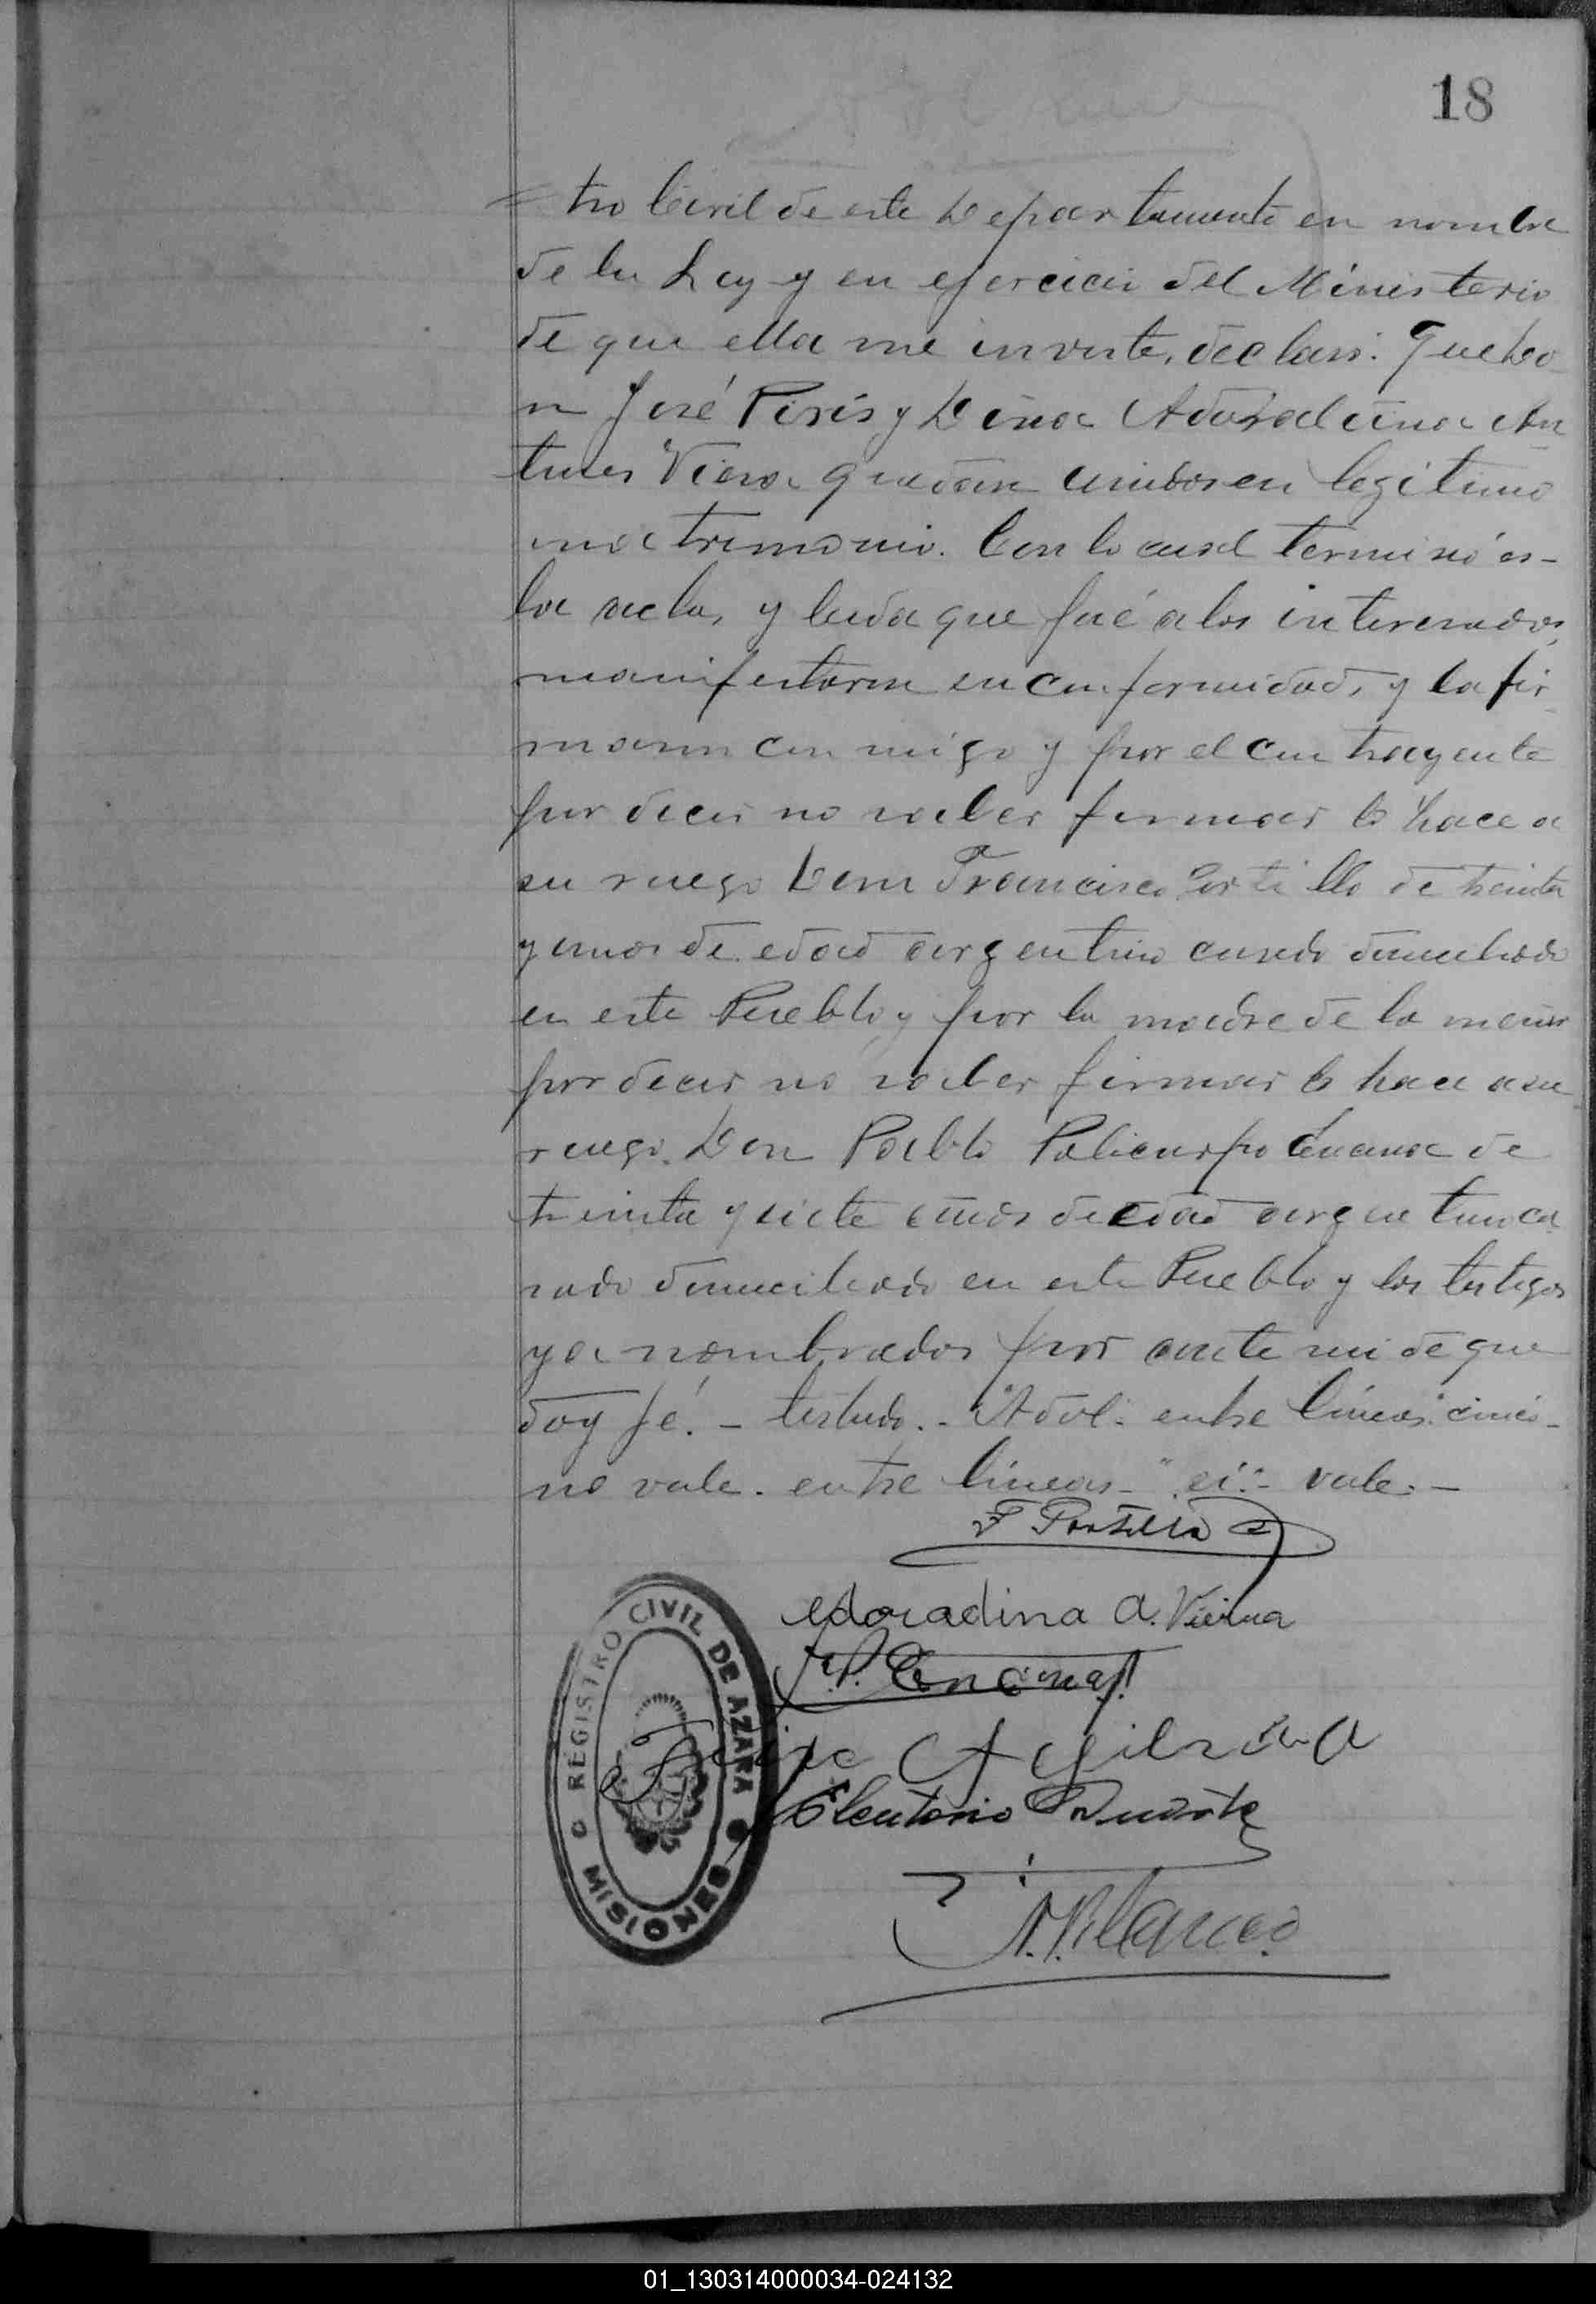 18
tro Civil de este Departamento en nombre
de la Ley y en ejercicio del Ministerio
de que ella me inviste, declaro: Que Do
n José Pirés y Doña Adoradina An
tunes Viera quedan unidos en legitimo
matrimonio. Con lo cual terminó es-
ta acta, y leida que fué a los interesados,
manifestaron su conformidad, y la fir
maron con migo y por el contrayente
por decir no saber firmar lo hace a
su ruego Don Francisco Portillo de treinta
y anos de edad argentino casado domiciliado
en este Pueblo y por la madre de la menor
por decir no saber firmar lo hace a su
ruego Don Pablo Policarpo Encina de
treinta y siete años de edad argentino ca
sado domiciliado en este Pueblo y los testigos
ya nombrados por ante mi de que
doy fé. - testado. - "Adol" entre líneas
no vale. entre líneas - vale. -
F Portillo
Adoradina A. Vieira
P. P. Encina
Eleuterio Duarte
Blanco
REGISTRO CIVIL DE AZARA
MISIONES
01_130314000034-024132